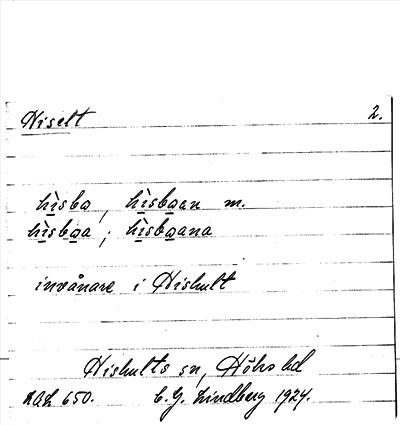 Hiselt 2.
hìsba, hìsbaan m.
hìsbaa; hìsbaana
invånare i Hishult
Hishults sn, Höks hd
LAL 650. C.G. Lindberg 1924.